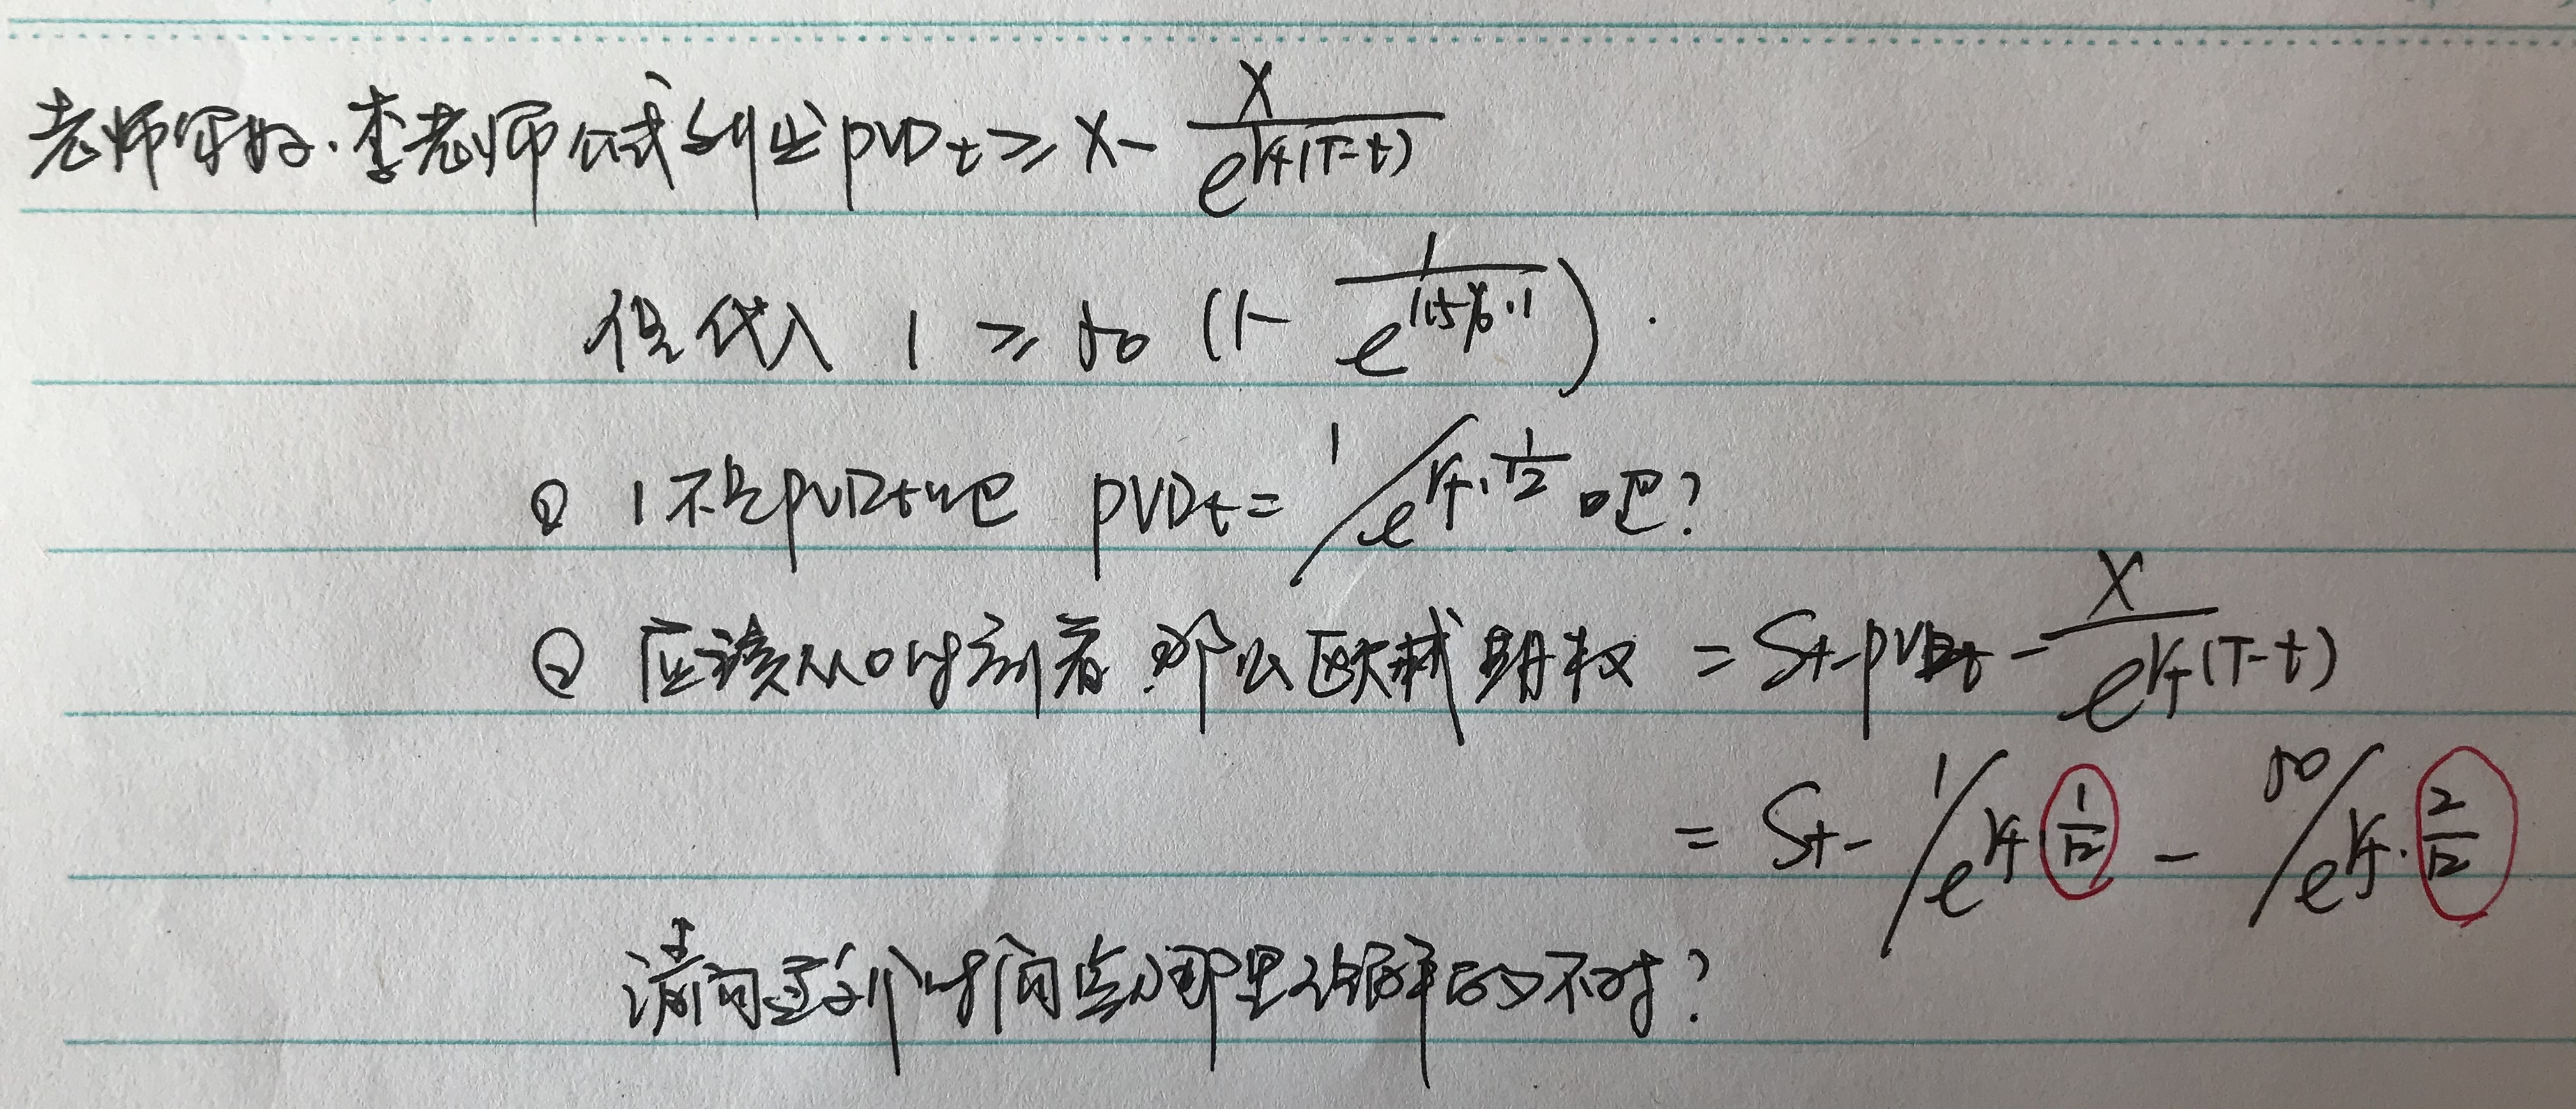 老师你好.李老师公式列出 PVDt ≥ X - X/e^{rf(T-t)}
但代入 1 ≥ 50 (1 - 1/e^{1.5%·1}).
① 1不是PVDt吧 PVDt = 1/e^{rf·1/12} 吧?
② 应该从0时刻看.那么欧式期权 = St - PVDt - X/e^{rf(T-t)}
= St - 1/e^{rf·1/12} - 50/e^{rf·2/12}
请问这个时间点哪里理解的不对?